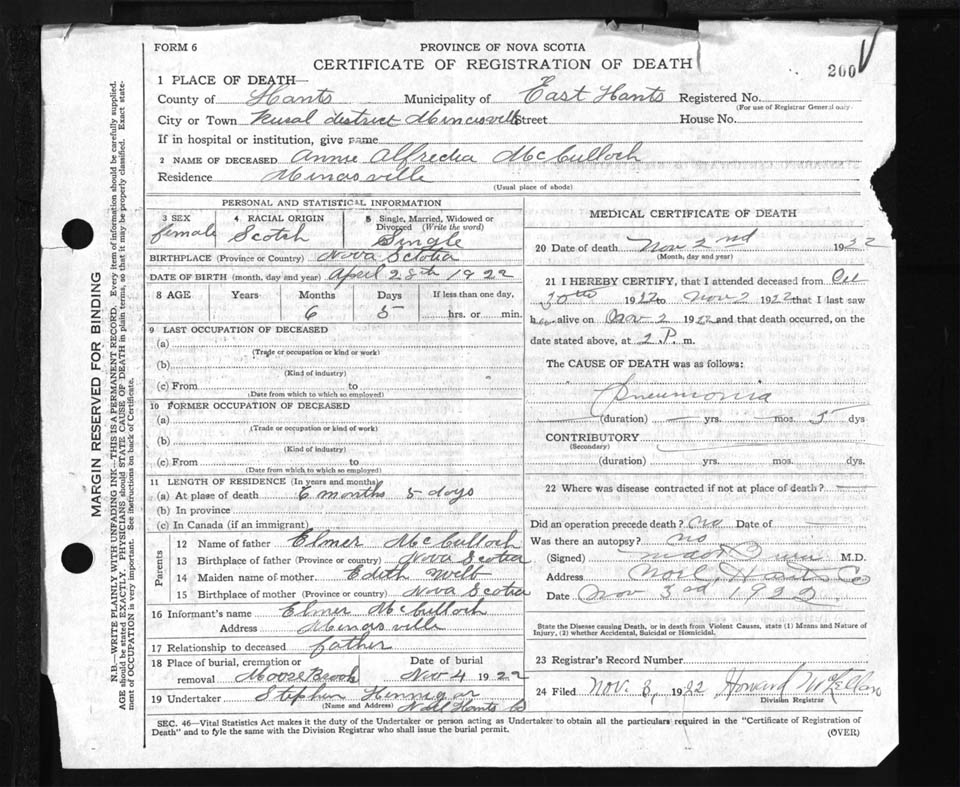 FORM 6
PROVINCE OF NOVA SCOTIA
CERTIFICATE OF REGISTRATION OF DEATH
200
1 PLACE OF DEATH—
County of Hants Municipality of East Hants Registered No.
(For use of Registrar General only.
City or Town Rural district Minasville Street House No.
If in hospital or institution, give name
2 NAME OF DECEASED Annie Alfreda McCulloch
Residence Minasville
(Usual place of abode)
PERSONAL AND STATISTICAL INFORMATION
3 SEX female
4 RACIAL ORIGIN Scotsh
5 Single, Married, Widowed or Divorced (Write the word) Single
BIRTHPLACE (Province or Country) Nova Scotia
DATE OF BIRTH (month, day and year) April 28th 1922
8 AGE Years Months Days If less than one day,
6 5 hrs. or min.
9 LAST OCCUPATION OF DECEASED
(a)
(Trade or occupation or kind or work)
(b)
(Kind of industry)
(c) From to
(Date from which to which so employed)
10 FORMER OCCUPATION OF DECEASED
(a)
(Trade or occupation or kind of work)
(b)
(Kind of industry)
(c) From to
(Date from which to which so employed)
11 LENGTH OF RESIDENCE (In years and months)
(a) At place of death 6 months 5 days
(b) In province
(c) In Canada (if an immigrant)
Parents
12 Name of father Elmer McCulloch
13 Birthplace of father (Province or country) Nova Scotia
14 Maiden name of mother Edith Webb
15 Birthplace of mother (Province or country) Nova Scotia
16 Informant's name Elmer McCulloch
Address Minasville
17 Relationship to deceased father
18 Place of burial, cremation or removal Moose Brook Date of burial Nov 4 1922
19 Undertaker Stephen Hennigar
(Name and Address) Noel Hants Co
MEDICAL CERTIFICATE OF DEATH
20 Date of death Nov 2nd 1922
(Month, day and year)
21 I HEREBY CERTIFY, that I attended deceased from Oct
30th 1922 to Nov 2 1922 that I last saw
her alive on Nov 2 1922 and that death occurred, on the
date stated above, at 2 P. m.
The CAUSE OF DEATH was as follows:
Pneumonia
(duration) — yrs. — mos. 5 dys
CONTRIBUTORY
(Secondary)
(duration) yrs. mos. dys.
22 Where was disease contracted if not at place of death? —
Did an operation precede death? no Date of —
Was there an autopsy? no
(Signed) M.D.
Address Noel, Hants Co
Date Nov 3rd 1922
State the Disease causing Death, or in death from Violent Causes, state (1) Means and Nature of
Injury, (2) whether Accidental, Suicidal or Homicidal.
23 Registrar's Record Number
24 Filed Nov. 8, 1922 Howard McLellan
Division Registrar
SEC. 46—Vital Statistics Act makes it the duty of the Undertaker or person acting as Undertaker to obtain all the particulars required in the "Certificate of Registration of
Death" and to fyle the same with the Division Registrar who shall issue the burial permit.
(OVER)
MARGIN RESERVED FOR BINDING
N.B.—WRITE PLAINLY WITH UNFADING INK—THIS IS A PERMANENT RECORD. Every item of information should be carefully supplied.
AGE should be stated EXACTLY. PHYSICIANS should STATE CAUSE OF DEATH in plain terms, so that it may be properly classified. Exact state-
ment of OCCUPATION is very important. See instructions on back of Certificate.